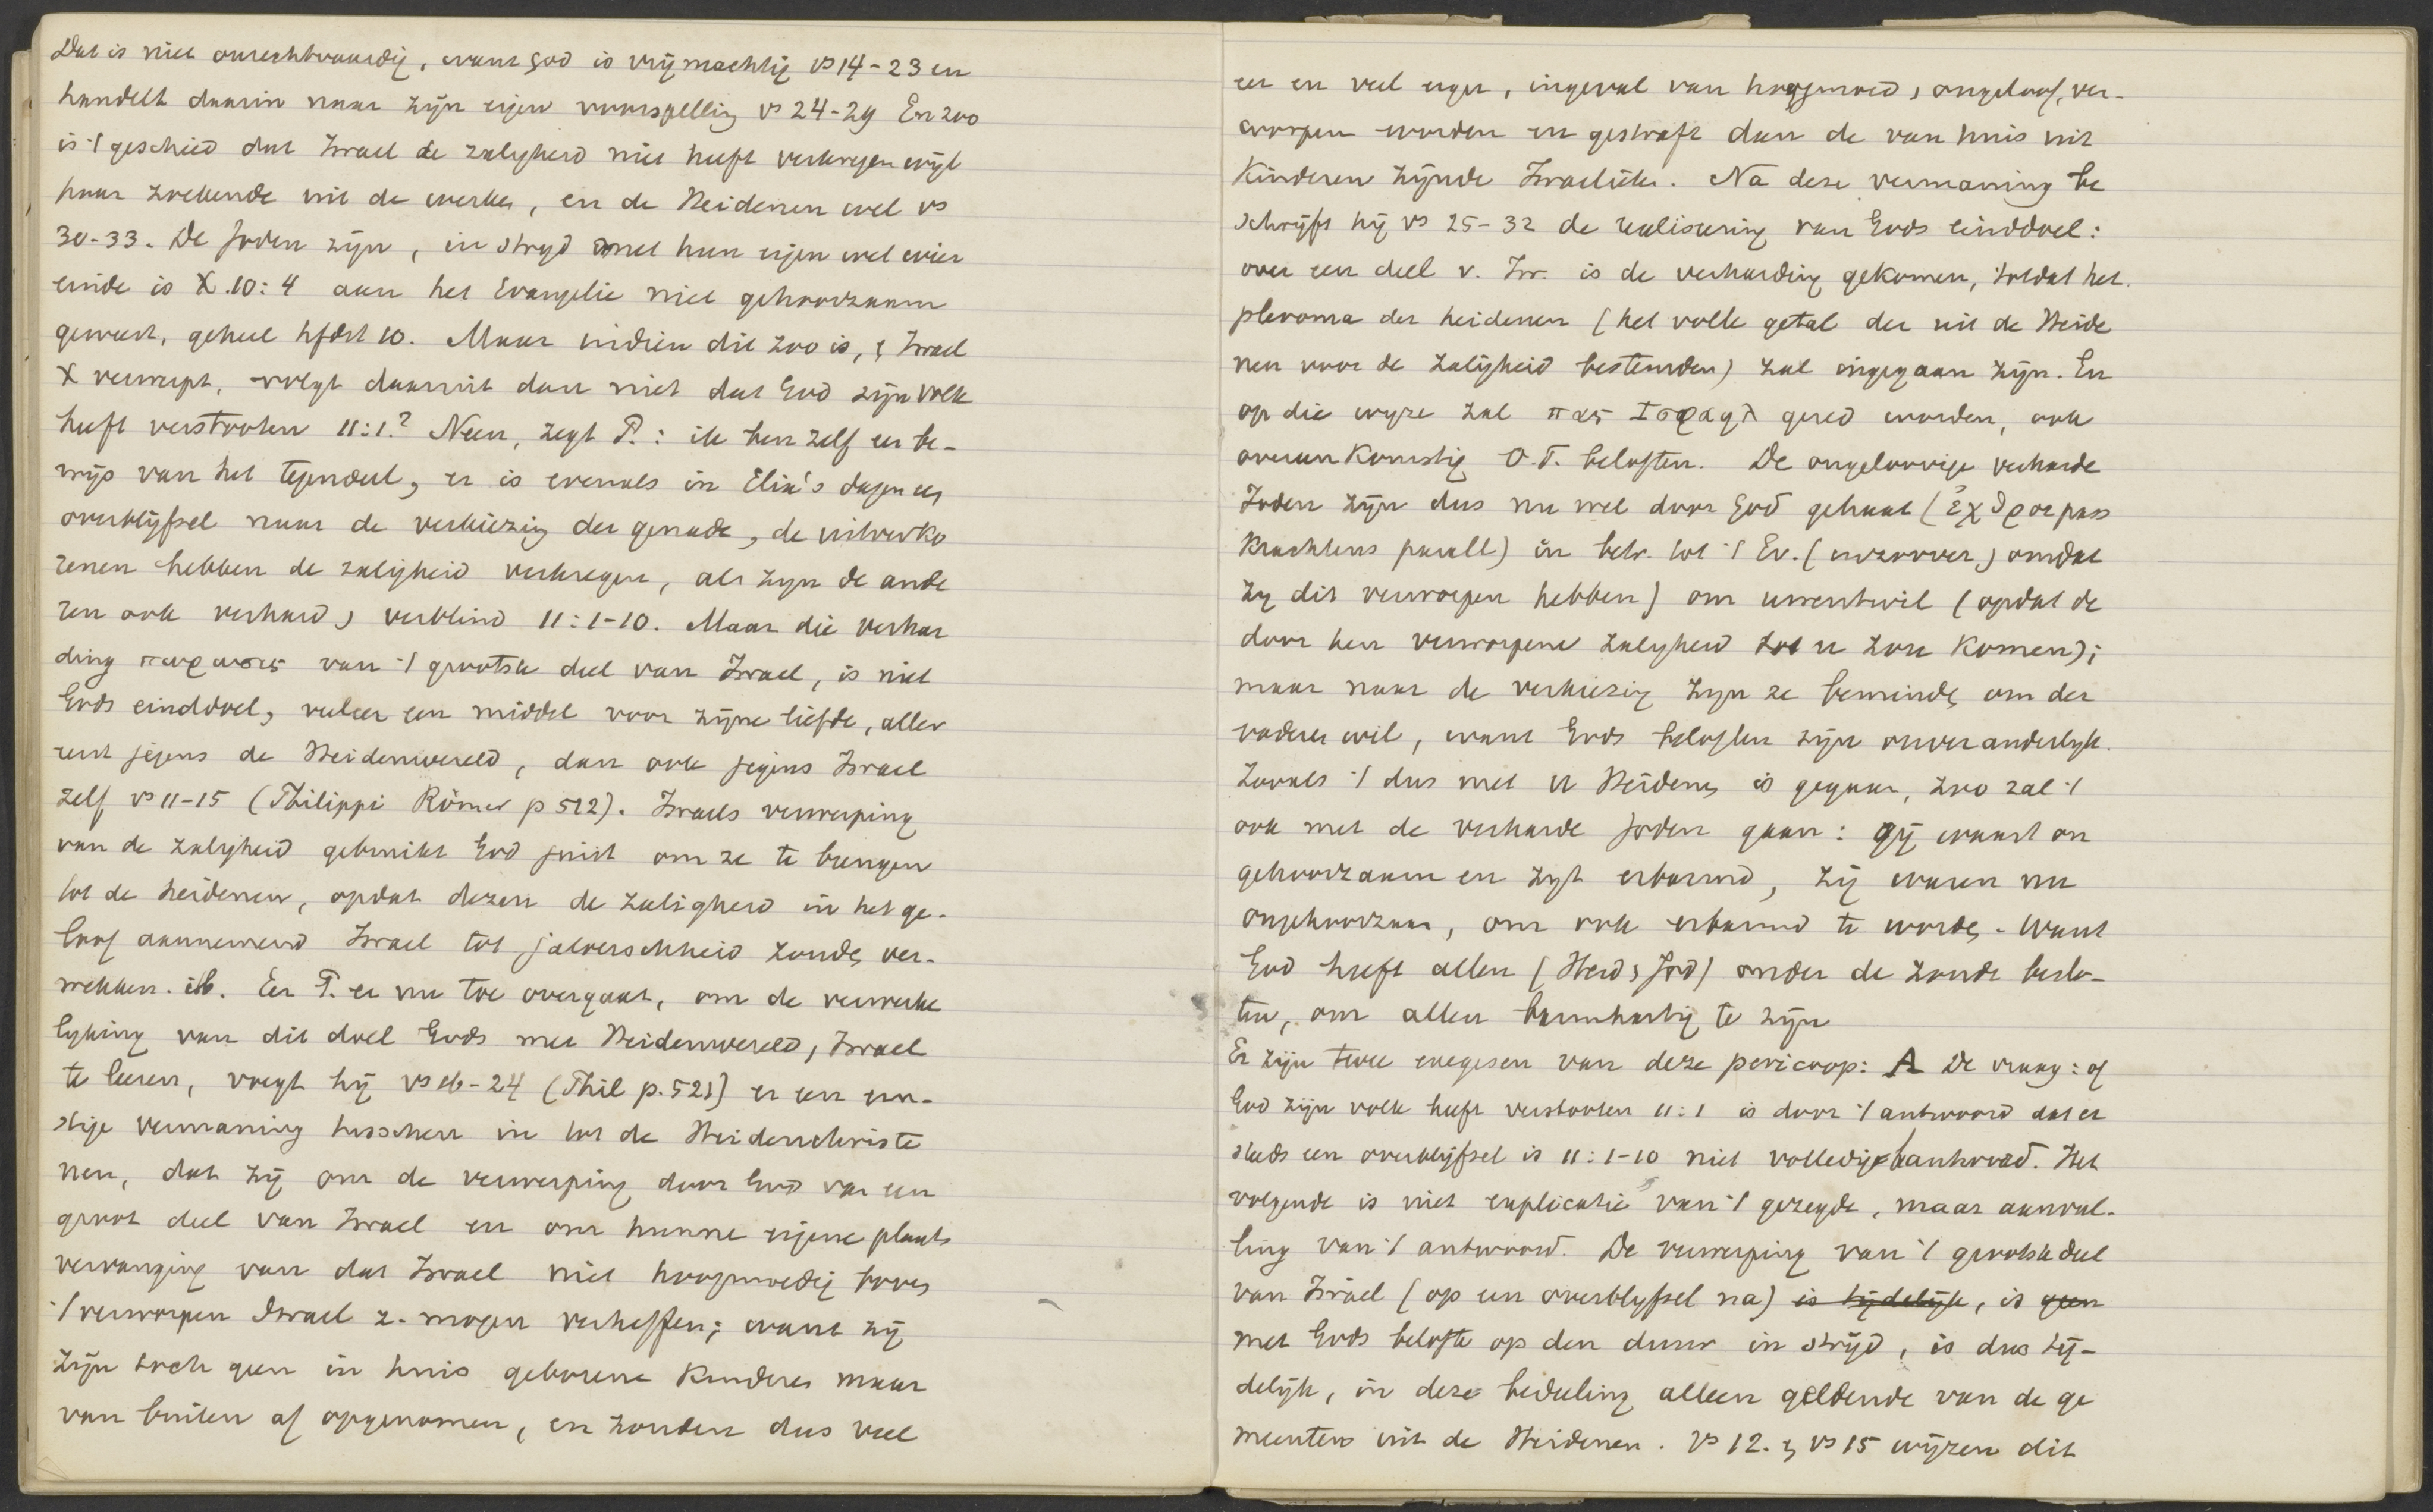 Dat is niet onrechtvaardig, want God is vrijmachtig vs 14-23 en
handelt daarin naar zijn eigen voorspelling vs 24-29 En zoo
is 't geschied dat Israel de zaligheid niet heeft verkregen wijl
haar zoekende uit de werken, en de Heidenen wel vs
30-33. De Joden zijn, in strijd met hun eigen wet wier
einde is X. 10:4 aan het Evangelie niet gehoorzaam
geweest, geheel hfdst 10. Maar indien dit zoo is, & Israel
X verwerpt, volgt daaruit dan niet dat God zijn volk
heeft verstooten 11:1? Neen, zegt P.: ik ben zelf er be-
wijs van het tegendeel, er is evenals in Elia's dagen een
overblijfsel naar de verkiezing der genade, de uitverko
renen hebben de zaligheid verkregen, al zijn de ande
ren ook verhard & verblind 11:1-10. Maar die verhar
ding πωρωσις van 't grootste deel van Israel, is niet
Gods einddoel, veeleer een middel voor zijne liefde, aller
eerst jegens de Heidenwereld, dan ook jegens Israel
zelf vs 11-15 (Philippi Römer p 512). Israels verwerping
van de zaligheid gebruikt God juist om ze te brengen
tot de heidenen, opdat dezen de zaligheid in het ge-
loof aannemend Israel tot jaloerschheid zouden ver-
wekken. ib. Eer P. er nu toe overgaat, om de verwerke
lijking van dit doel Gods met Heidenwereld, Israel
te leeren, voegt hij vs 16-24 (Thil p. 521) er een ern-
stige vermaning tusschen in tot de Heidenchriste
nen, dat zij om de verwerping door God van een
groot deel van Israel en om hunne eigene plaats
vervanging van dat Israel niet hoogmoedig boven
't verworpen Israel z. mogen verheffen; want zij
zijn toch geen in huis geborene Kinderen maar
van buiten af opgenomen, en zouden dus veel
eer en veel erger, ingeval van hoogmoed & ongeloof, ver-
worpen worden en gestraft dan de van huis uit
Kinderen zijnde Israelieten. Na deze vermaning be
schrijft hij vs 25-32 de realiseering van Gods einddoel:
over een deel v. Isr. is de verharding gekomen, totdat het
pleroma der heidenen (het volle getal der uit de Heide
nen voor de zaligheid bestemden) zal ingegaan zijn. En
op die wijze zal πας Ισραηλ gered worden, ook
overeenkomstig O.T. beloften. De ongeloovige verharde
Joden zijn dus nu wel door God gehaat (ἐχθροι pass
krachtens parall) in betr. tot 't Ev. (inzoover omdat
zij dit verworpen hebben) om uwentwil (opdat de
door hen verworpene zaligheid tot u zou komen);
maar naar de verkiezing zijn ze beminden om der
vaderen wil, want Gods beloften zijn onveranderlijk.
Zooals 't dus met u Heidenen is gegaan, zoo zal 't
ook met de verharde Joden gaan: gij waart on
gehoorzaam en zijt erbarmd, zij waren nu
ongehoorzaam, om ook erbarmd te worden. Want
God heeft allen (Heid & Jod) onder de zonde beslo-
ten, om allen barmhartig te zijn
Er zijn twee exegesen van deze pericoop: A De vraag: of
God zijn volk heeft verstooten 11:1 is door 't antwoord dat er
steeds een overblijfsel is 11:1-10 niet volledig beantwoord. Het
volgende is niet explicatie van 't gezegde, maar aanvul-
ling van 't antwoord. De verwerping van 't grootste deel
van Israel (op een overblijfsel na) is tijdelijk, is geen
met Gods belofte op den duur in strijd, is dus tij-
delijk, in deze bedeeling alleen geldende van de ge
meenten uit de Heidenen. Vs 12. & vs 15 wijzen dit